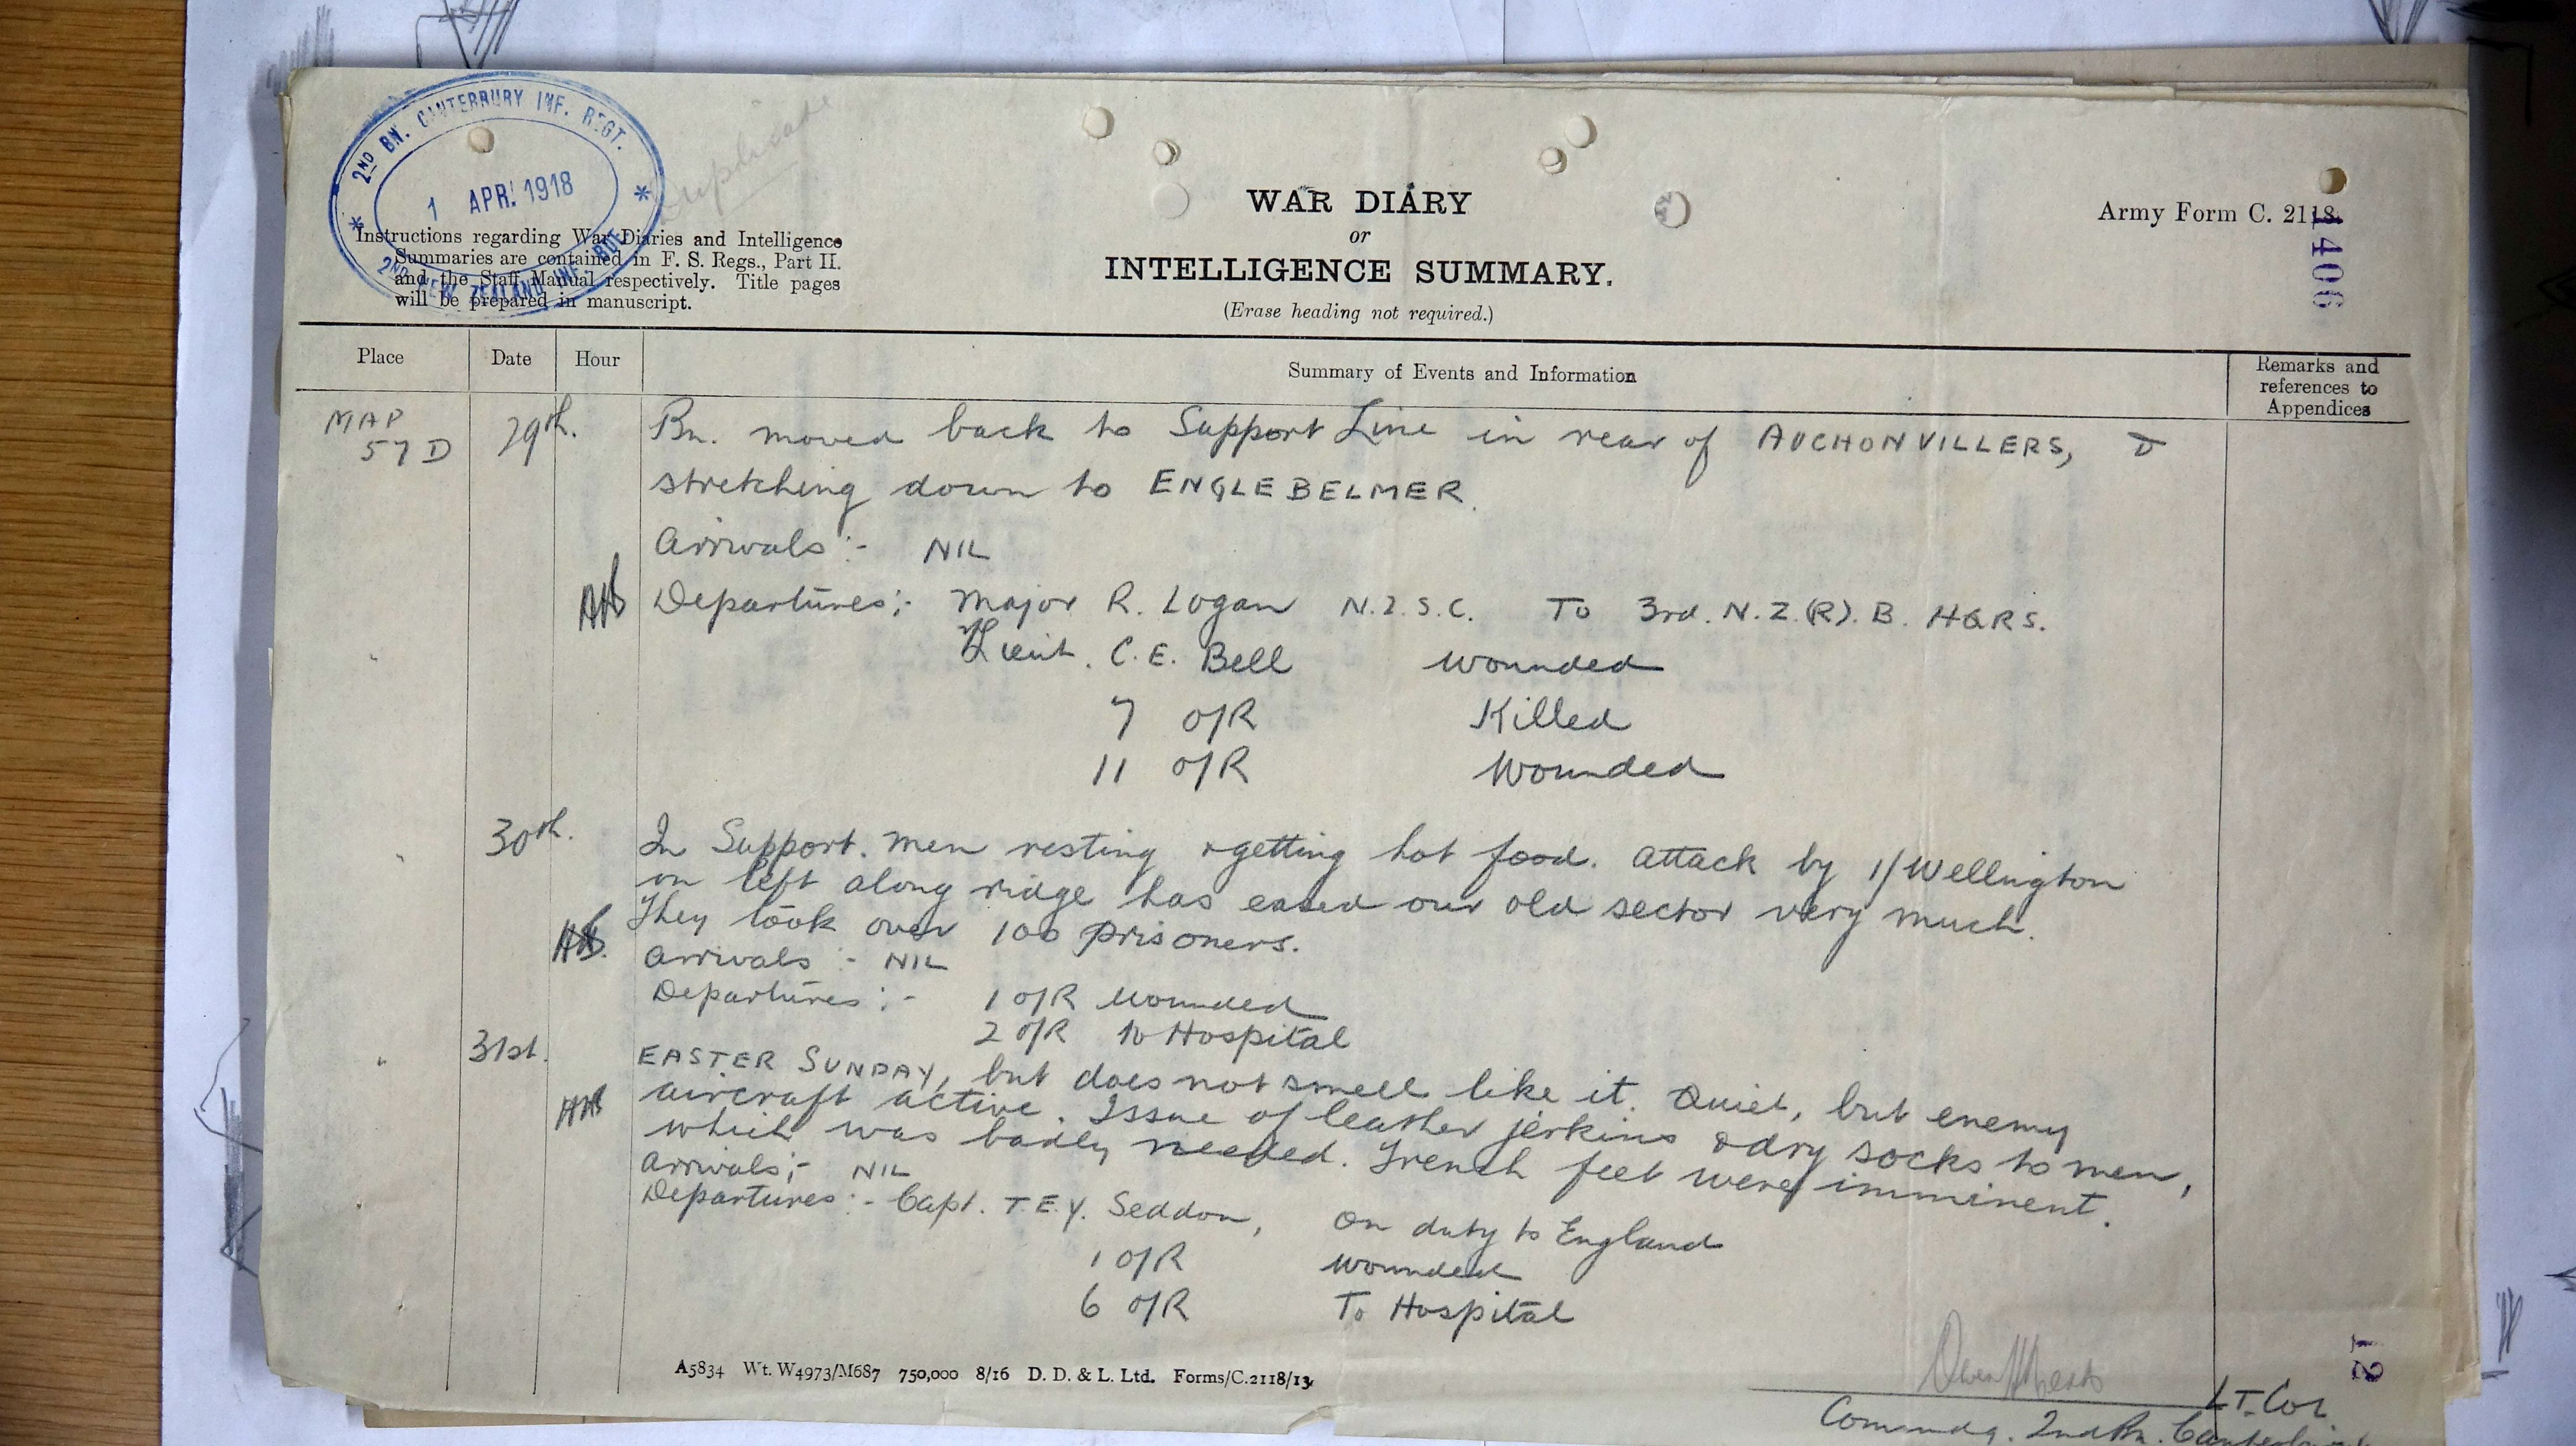 2ND BN. CANTERBURY INF. REGT.
1 APR. 1918
2ND NEW ZEALAND INF. BDE
Duplicate
Instructions regarding War Diaries and Intelligence
Summaries are contained in F. S. Regs., Part II.
and the Staff Manual respectively. Title pages
will be prepared in manuscript.
WAR DIARY
or
INTELLIGENCE SUMMARY.
(Erase heading not required.)
Army Form C. 2118.
1406
Place Date Hour Summary of Events and Information Remarks and
references to
Appendices
MAP
57 D
29th. Bn. moved back to Support Line in rear of AUCHONVILLERS, &
stretching down to ENGLEBELMER.
Arrivals :- NIL
Departures :- Major R. Logan N.Z.S.C. To 3rd. N.Z.(R). B. HQRS.
Lieut. C.E. Bell wounded
7 O/R Killed
11 O/R Wounded
30th. In Support. Men resting & getting hot food. Attack by 1/Wellington
on left along ridge has eased our old sector very much.
They took over 100 prisoners.
Arrivals :- NIL
Departures :- 1 O/R wounded
2 O/R to Hospital
31st. EASTER SUNDAY, but does not smell like it. Quiet, but enemy
aircraft active. Issue of leather jerkins & dry socks to men,
which was badly needed. Trench feet were imminent.
Arrivals :- NIL
Departures :- Capt. T.E.Y. Seddon, On duty to England
1 O/R wounded
6 O/R To Hospital
A5834 Wt. W4973/M687 750,000 8/16 D. D. & L. Ltd. Forms/C.2118/13.
12
LT. COL
Commdg. 2nd Bn.